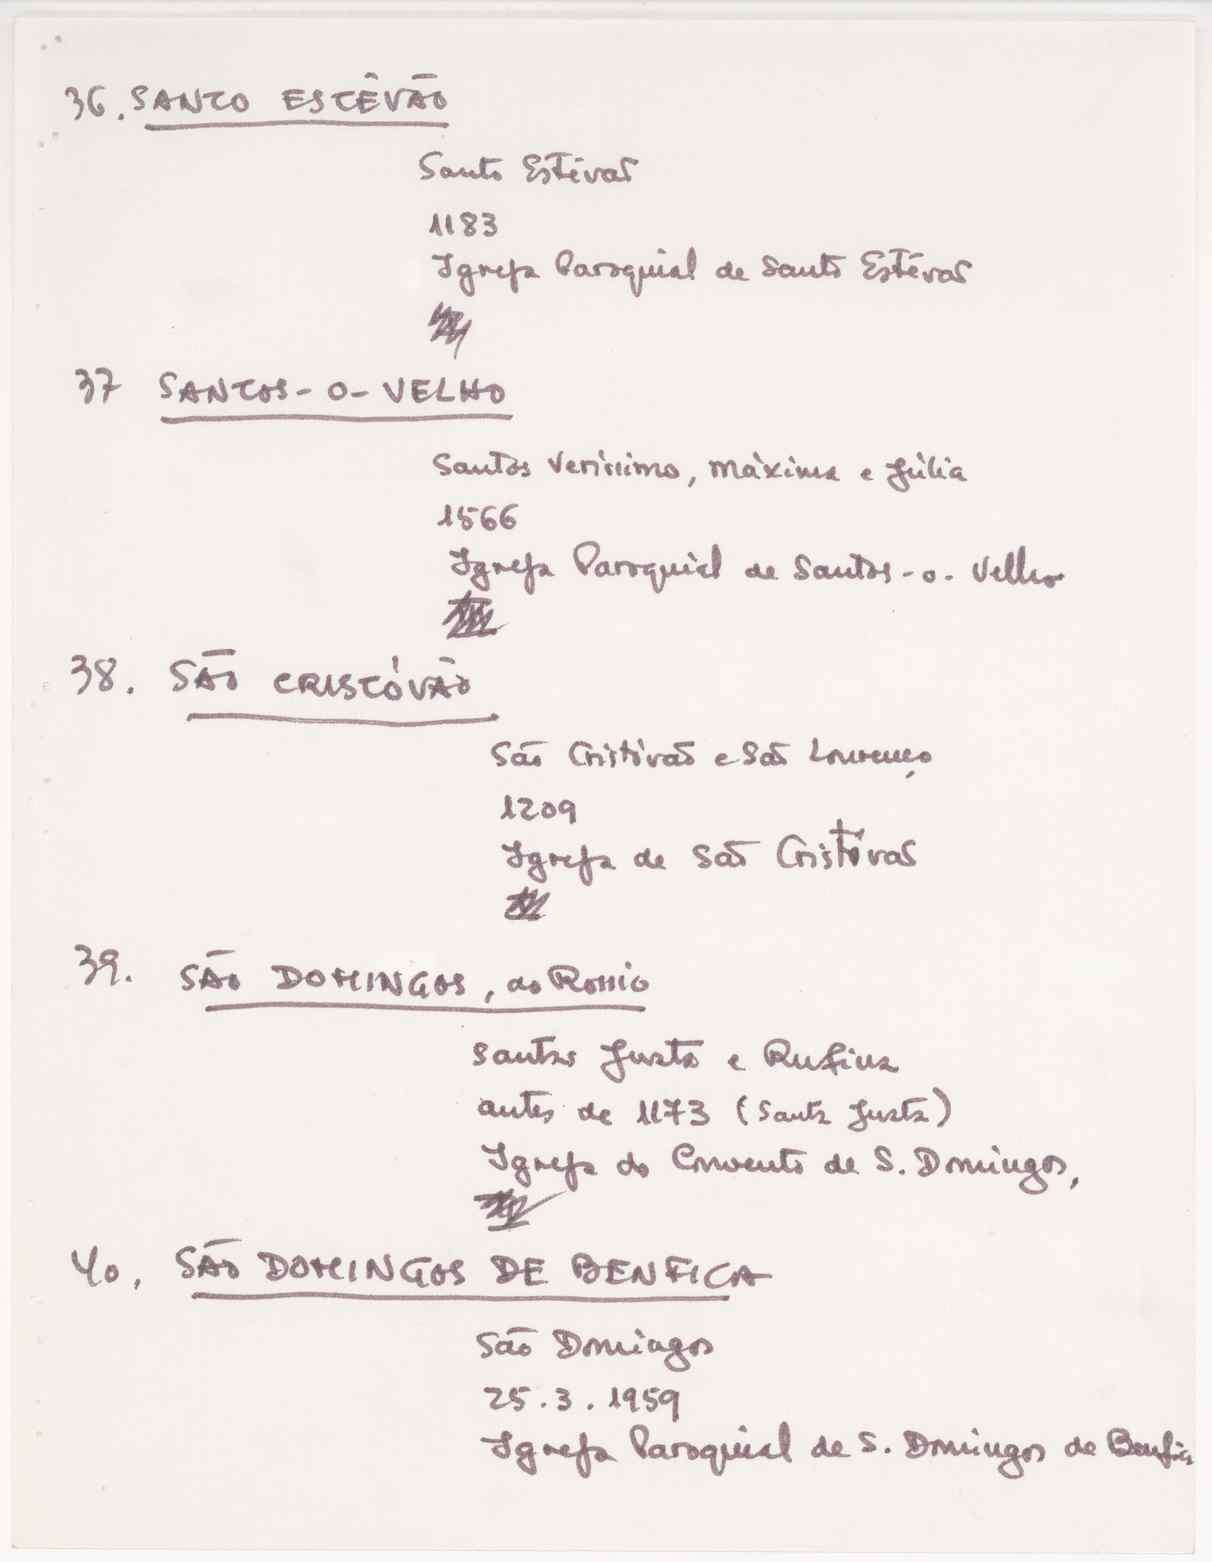 36. SANTO ESTÊVÃO
Santo Estêvão
1183
Igreja Paroquial de Santo Estêvão
37 SANTOS-O-VELHO
Santos Veríssimo, Máxima e Júlia
1566
Igreja Paroquial de Santos-o-Velho
38. SÃO CRISTÓVÃO
São Cristóvão e São Lourenço
1209
Igreja de São Cristóvão
39. SÃO DOMINGOS, do Rossio
Santas Justa e Rufina
antes de 1173 (Santa Justa)
Igreja do Convento de S. Domingos,
40. SÃO DOMINGOS DE BENFICA
São Domingos
25.3.1959
Igreja Paroquial de S. Domingos de Benfica